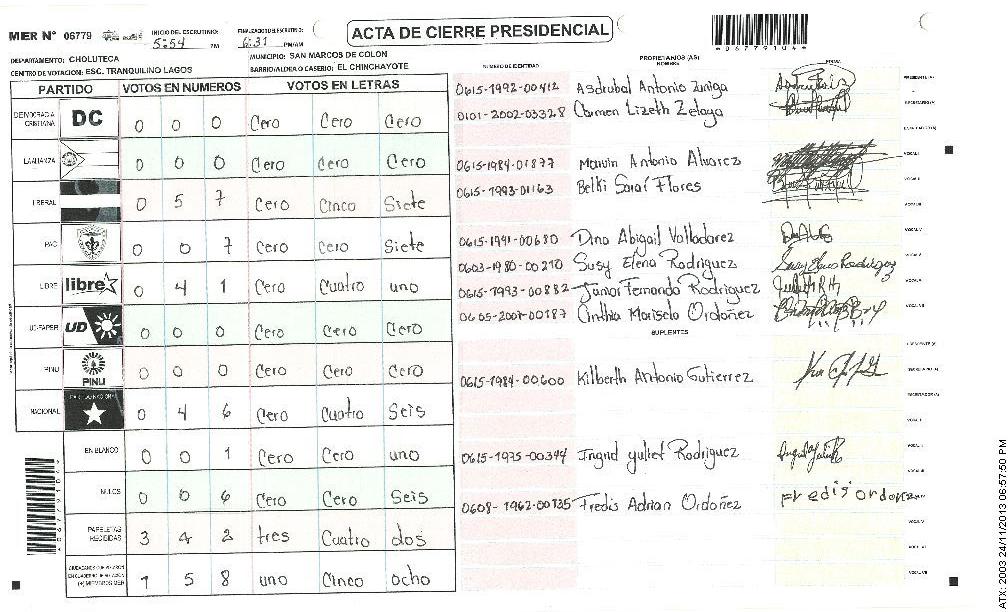 MER N° 06779
INICIO DEL ESCRUTINIO:
5:54 PM
FINALIZADO EL ESCRUTINIO:
6:31 PM/AM
ACTA DE CIERRE PRESIDENCIAL
*067791044*
DEPARTAMENTO: CHOLUTECA
MUNICIPIO: SAN MARCOS DE COLON
CENTRO DE VOTACION: ESC. TRANQUILINO LAGOS
BARRIO/ALDEA O CASERIO: EL CHINCHAYOTE
PARTIDO VOTOS EN NUMEROS VOTOS EN LETRAS
DEMOCRACIA CRISTIANA DC 0 0 0 Cero Cero Cero
LA ALIANZA 0 0 0 Cero Cero Cero
LIBERAL 0 5 7 Cero Cinco Siete
PAC 0 0 7 Cero Cero Siete
LIBRE libre 0 4 1 Cero Cuatro uno
UD-FAPER UD 0 0 0 Cero Cero Cero
PINU PINU 0 0 0 Cero Cero Cero
NACIONAL PARTIDO NACIONAL 0 4 6 Cero Cuatro Seis
EN BLANCO 0 0 1 Cero Cero uno
NULOS 0 0 6 Cero Cero Seis
PAPELETAS RECIBIDAS 3 4 2 tres Cuatro dos
CIUDADANOS QUE VOTARON
EN CUADERNO DE VOTACION
(+) MIEMBROS MER 1 5 8 uno Cinco ocho
NUMERO DE IDENTIDAD
PROPIETARIOS (AS)
NOMBRE
FIRMA
0615-1992-00412 Asdrubal Antonio Zuniga PRESIDENTE (A)
0101-2002-03328 Carmen Lizeth Zelaya SECRETARIO (A)
ESCRUTADOR (A)
0615-1984-01877 Marvin Antonio Alvarez VOCAL I
0615-1993-01163 Belki Saraí Flores VOCAL II
VOCAL III
0615-1991-00680 Dina Abigail Valladarez VOCAL IV
0603-1980-00210 Susy Elena Rodriguez Susy Elena Rodriguez VOCAL V
0615-1993-00882 Junior Fernando Rodriguez
0605-2007-00187 Cinthia Marisela Ordoñez
SUPLENTES
PRESIDENTE (A)
0615-1984-00600 Kilberth Antonio Gutierrez SECRETARIO (A)
ESCRUTADOR (A)
VOCAL I
0615-1975-00344 Ingrid yuliet Rodriguez VOCAL II
VOCAL III
0608-1962-00135 Fredis Adrian Ordoñez Fredis ordon
VOCAL V
VOCAL VI
VOCAL VII
ATX: 2003 24/11/2013 06:57:50 PM